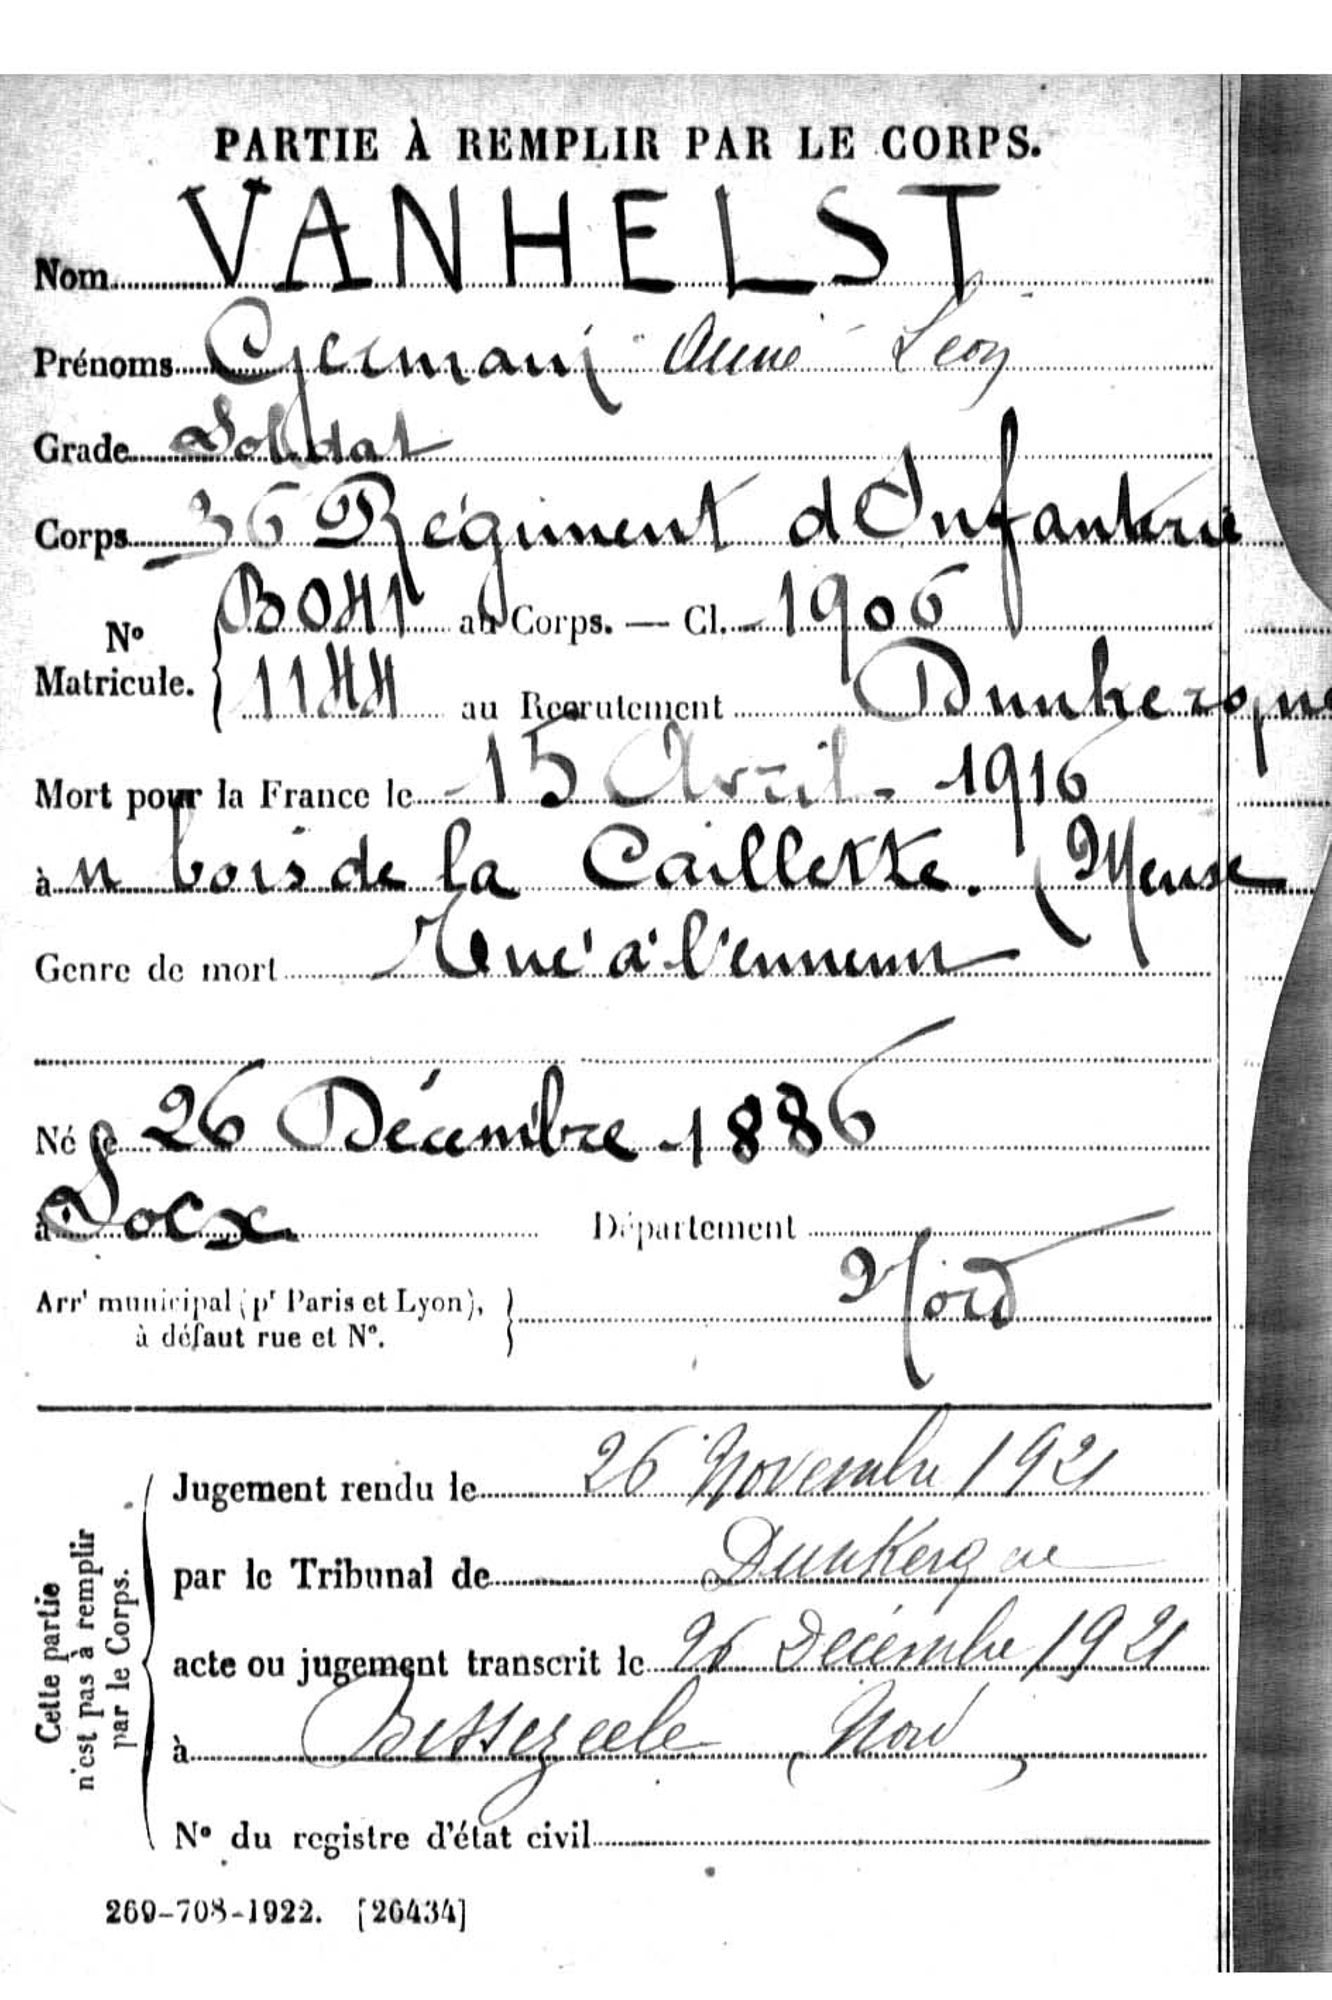 PARTIE À REMPLIR PAR LE CORPS.
Nom VANHELST
Prénoms Germain Aimé Léon
Grade Soldat
Corps 36 Régiment d'Infanterie
N° Matricule. { 8041 au Corps. — Cl. 1906
1144 au Recrutement Dunkerque
Mort pour la France le 15 Avril 1916
à u bois de la Caillette. (Meuse
Genre de mort Tué à l'ennemi
Né le 26 Décembre 1886
à Socx Département
Nord
Arrt municipal (pr Paris et Lyon), à défaut rue et N°. }
Cette partie n'est pas à remplir par le Corps.
Jugement rendu le 26 Novembre 1921
par le Tribunal de Dunkerque
acte ou jugement transcrit le 26 Décembre 1921
à Bissezeele (Nord)
N° du registre d'état civil
269-708-1922. [26434]